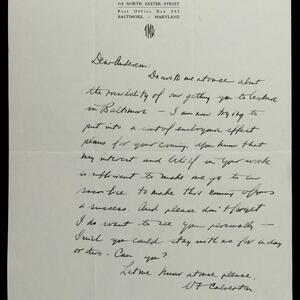 318 NORTH EXETER STREET
Post Office Box 353
BALTIMORE - MARYLAND
TMQ
Dear Anderson:
Do write me at once about
the possibility of our getting you to lecture
in Baltimore — I am now trying to
put into a sort of embryonic effect
plans for your coming. You know that
my interest and belief in your work
is sufficient to make me go to any
sacrifice to make this coming of yours
a success. And please don't forget
I do want to see you personally —
I wish you could stay with us for a day
or two. Can you?
Let me know at once please.
VF Calverton